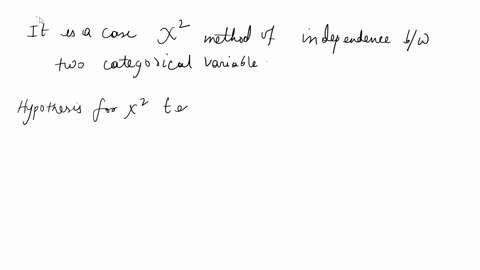 It is a case X² method of independence b/w
two categorical variable.
Hypothesis for x² te